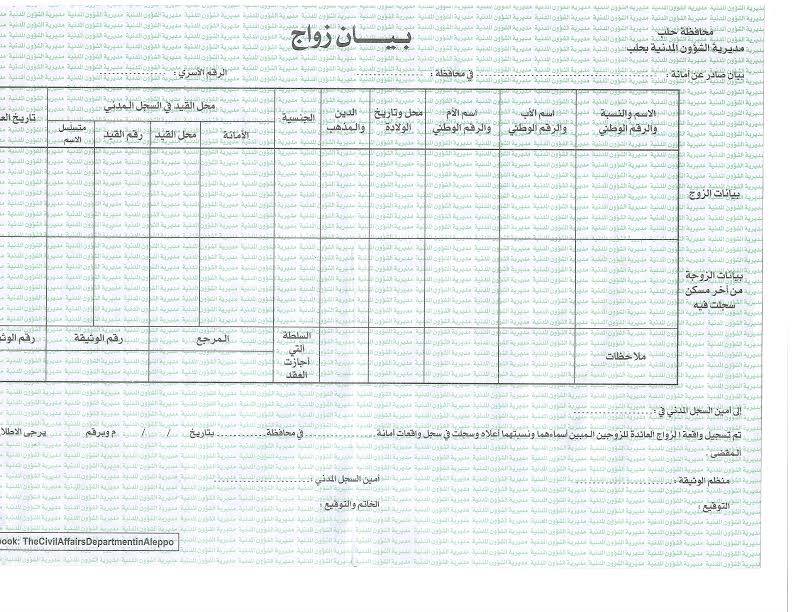 محافظة حلب
مديرية الشؤون المدنية بحلب
بيـــان زواج
بيان صادر عن أمانة : .......................... في محافظة : .................. الرقم الأسري : ..................
الاسم والنسبة والرقم الوطني
اسم الأب والرقم الوطني
اسم الأم والرقم الوطني
محل وتاريخ الولادة
الدين والمذهب
الجنسية
محل القيد في السجل المدني
الأمانة
محل القيد
رقم القيد
متسلسل الاسم
تاريخ
بيانات الزوج
بيانات الزوجة
من آخر مسكن
سجلت فيه
ملاحظات
السلطة التي اجازت العقد
المرجع
رقم الوثيقة
إلى أمين السجل المدني في : ..........................
تم تسجيل واقعة الزواج العائدة للزوجين المبين أسماءهما ونسبتهما أعلاه وسجلت في سجل واقعات أمانة .................. في محافظة .............. بتاريخ / / م وبرقم .......... يرجى
المقضى .
منظم الوثيقة : ..........................
أمين السجل المدني : ..........................
التوقيع :
الخاتم والتوقيع :
book: TheCivilAffairsDepartmentinAleppo